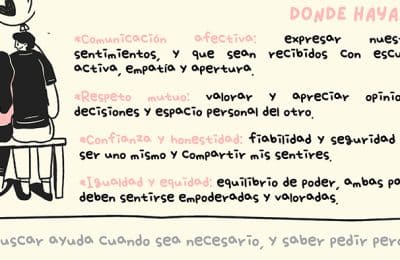 DONDE HAYA
*Comunicación afectiva: expresar
sentimientos, y que sean recibidos con
activa, empatía y apertura.
*Respeto mutuo: valorar y apreciar
decisiones y espacio personal del otro.
*Confianza y honestidad: fiabilidad y seguridad
ser uno mismo y compartir mis sentires.
*Igualdad y equidad: equilibrio de poder, ambas
deben sentirse empoderadas y valoradas.
ayuda cuando sea necesario, y saber pedir